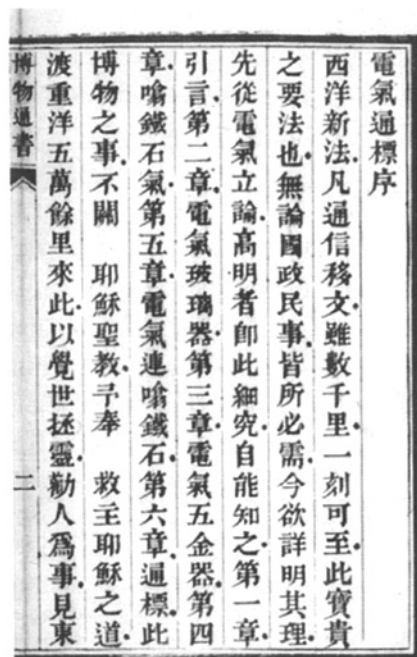 電氣通標序
西洋新法凡通信移文雖數千里一刻可至此寶貴
之要法也無論國政民事皆所必需今欲詳明其理
先從電氣立論高明者卽此細究自能知之第一章
引言第二章電氣玻璃器第三章電氣五金器第四
章噏鐵石氣第五章電氣連噏鐵石第六章通標此
博物之事不關 耶穌聖教予奉 救主耶穌之道
渡重洋五萬餘里來此以覺世拯靈勸人爲事見東
博物通書 二